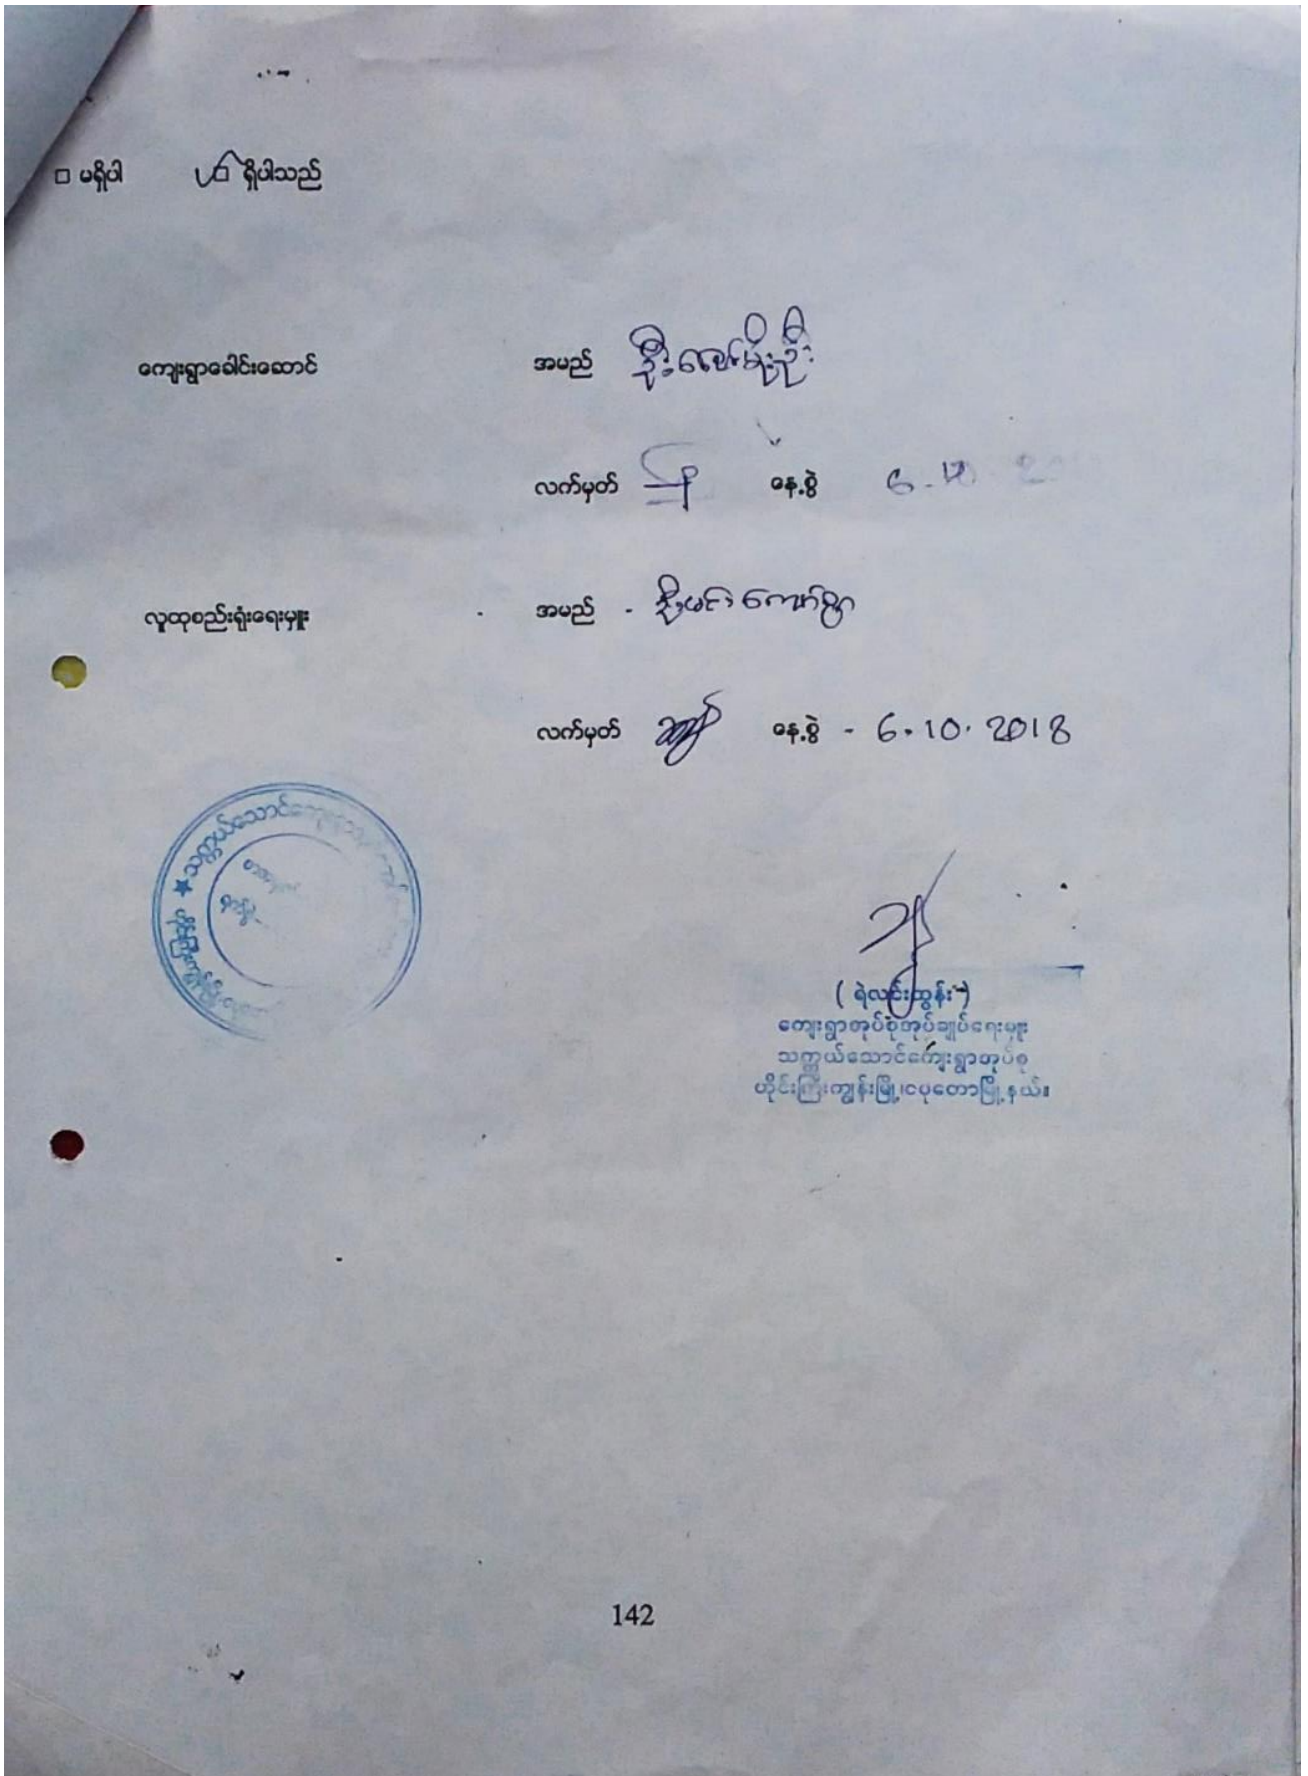 □ မရှိပါ □ ရှိပါသည်
ကျေးရွာခေါင်းဆောင် အမည် ဦးဇော်မိုးဦး
လက်မှတ် နေ့စွဲ 6.10
လူထုစည်းရုံးရေးမှူး - အမည် - ဦးမင်းကျော်စွာ
လက်မှတ် နေ့စွဲ - 6.10.2018
သက္ကယ်သောင်ကျေးရွာ
(ရဲလင်းထွန်း)
ကျေးရွာအုပ်စုအုပ်ချုပ်ရေးမှူး
သက္ကယ်သောင်ကျေးရွာအုပ်စု
ဟိုင်းကြီးကျွန်းမြို့၊ငပုတောမြို့နယ်။
142